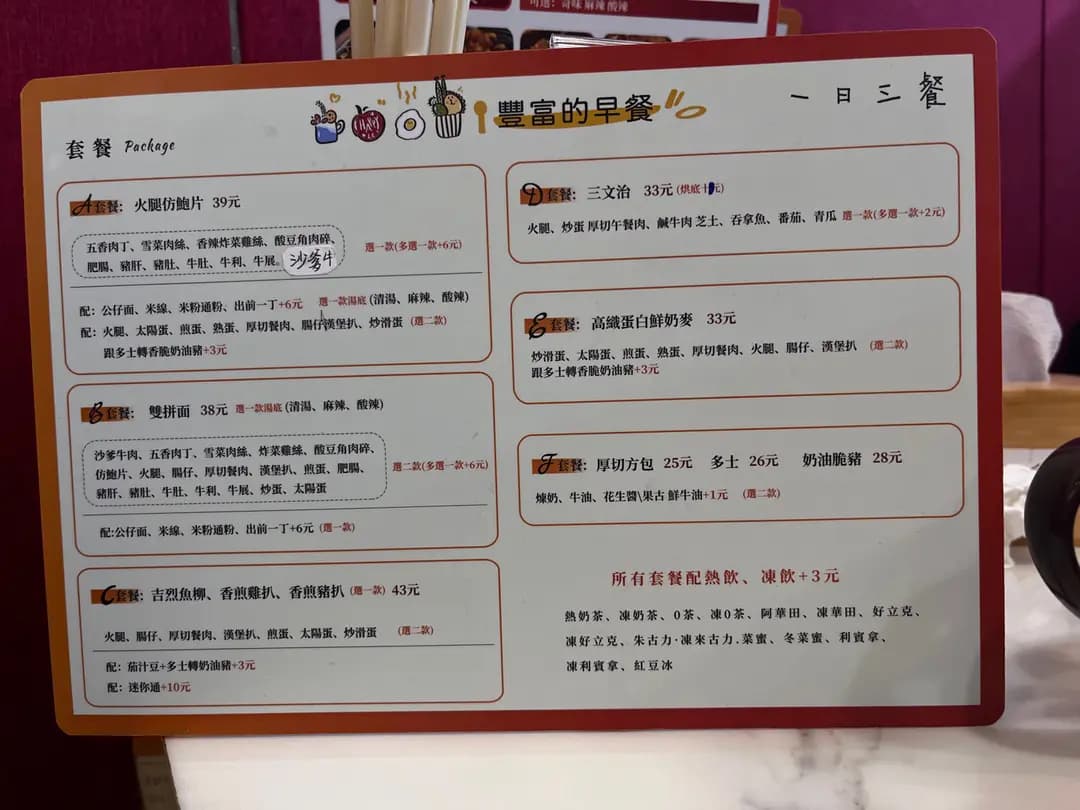 可選：奇味 麻辣 酸辣
豐富的早餐
一日三餐
套餐 Package
A套餐： 火腿仿鮑片 39元
五香肉丁、雪菜肉絲、香辣炸菜雞絲、酸豆角肉碎、
肥腸、豬肝、豬肚、牛肚、牛利、牛展。沙爹牛
選一款(多選一款+6元)
配：公仔面、米線、米粉通粉、出前一丁+6元 選一款湯底 (清湯、麻辣、酸辣)
配：火腿、太陽蛋、煎蛋、熟蛋、厚切餐肉、腸仔漢堡扒、炒滑蛋 (選二款)
跟多士轉香脆奶油豬+3元
B套餐： 雙拼面 38元 選一款湯底 (清湯、麻辣、酸辣)
沙爹牛肉、五香肉丁、雪菜肉絲、炸菜雞絲、酸豆角肉碎、
仿鮑片、火腿、腸仔、厚切餐肉、漢堡扒、煎蛋、肥腸、
豬肝、豬肚、牛肚、牛利、牛展、炒蛋、太陽蛋
選二款(多選一款+6元)
配:公仔面、米線、米粉通粉、出前一丁+6元 (選一款)
C套餐： 吉烈魚柳、香煎雞扒、香煎豬扒 (選一款) 43元
火腿、腸仔、厚切餐肉、漢堡扒、煎蛋、太陽蛋、炒滑蛋 (選二款)
配：茄汁豆+多士轉奶油豬+3元
配：迷你通+10元
D套餐： 三文治 33元 (烘底+元)
火腿、炒蛋 厚切午餐肉、鹹牛肉 芝士、吞拿魚、番茄、青瓜 選一款(多選一款+2元)
E套餐： 高纖蛋白鮮奶麥 33元
炒滑蛋、太陽蛋、煎蛋、熟蛋、厚切餐肉、火腿、腸仔、漢堡扒 (選二款)
跟多士轉香脆奶油豬+3元
F套餐： 厚切方包 25元 多士 26元 奶油脆豬 28元
煉奶、牛油、花生醬\果占 鮮牛油+1元 (選二款)
所有套餐配熱飲、凍飲+3元
熱奶茶、凍奶茶、0茶、凍0茶、阿華田、凍華田、好立克、
凍好立克、朱古力·凍來古力.菜蜜、冬菜蜜、利賓拿、
凍利賓拿、紅豆冰